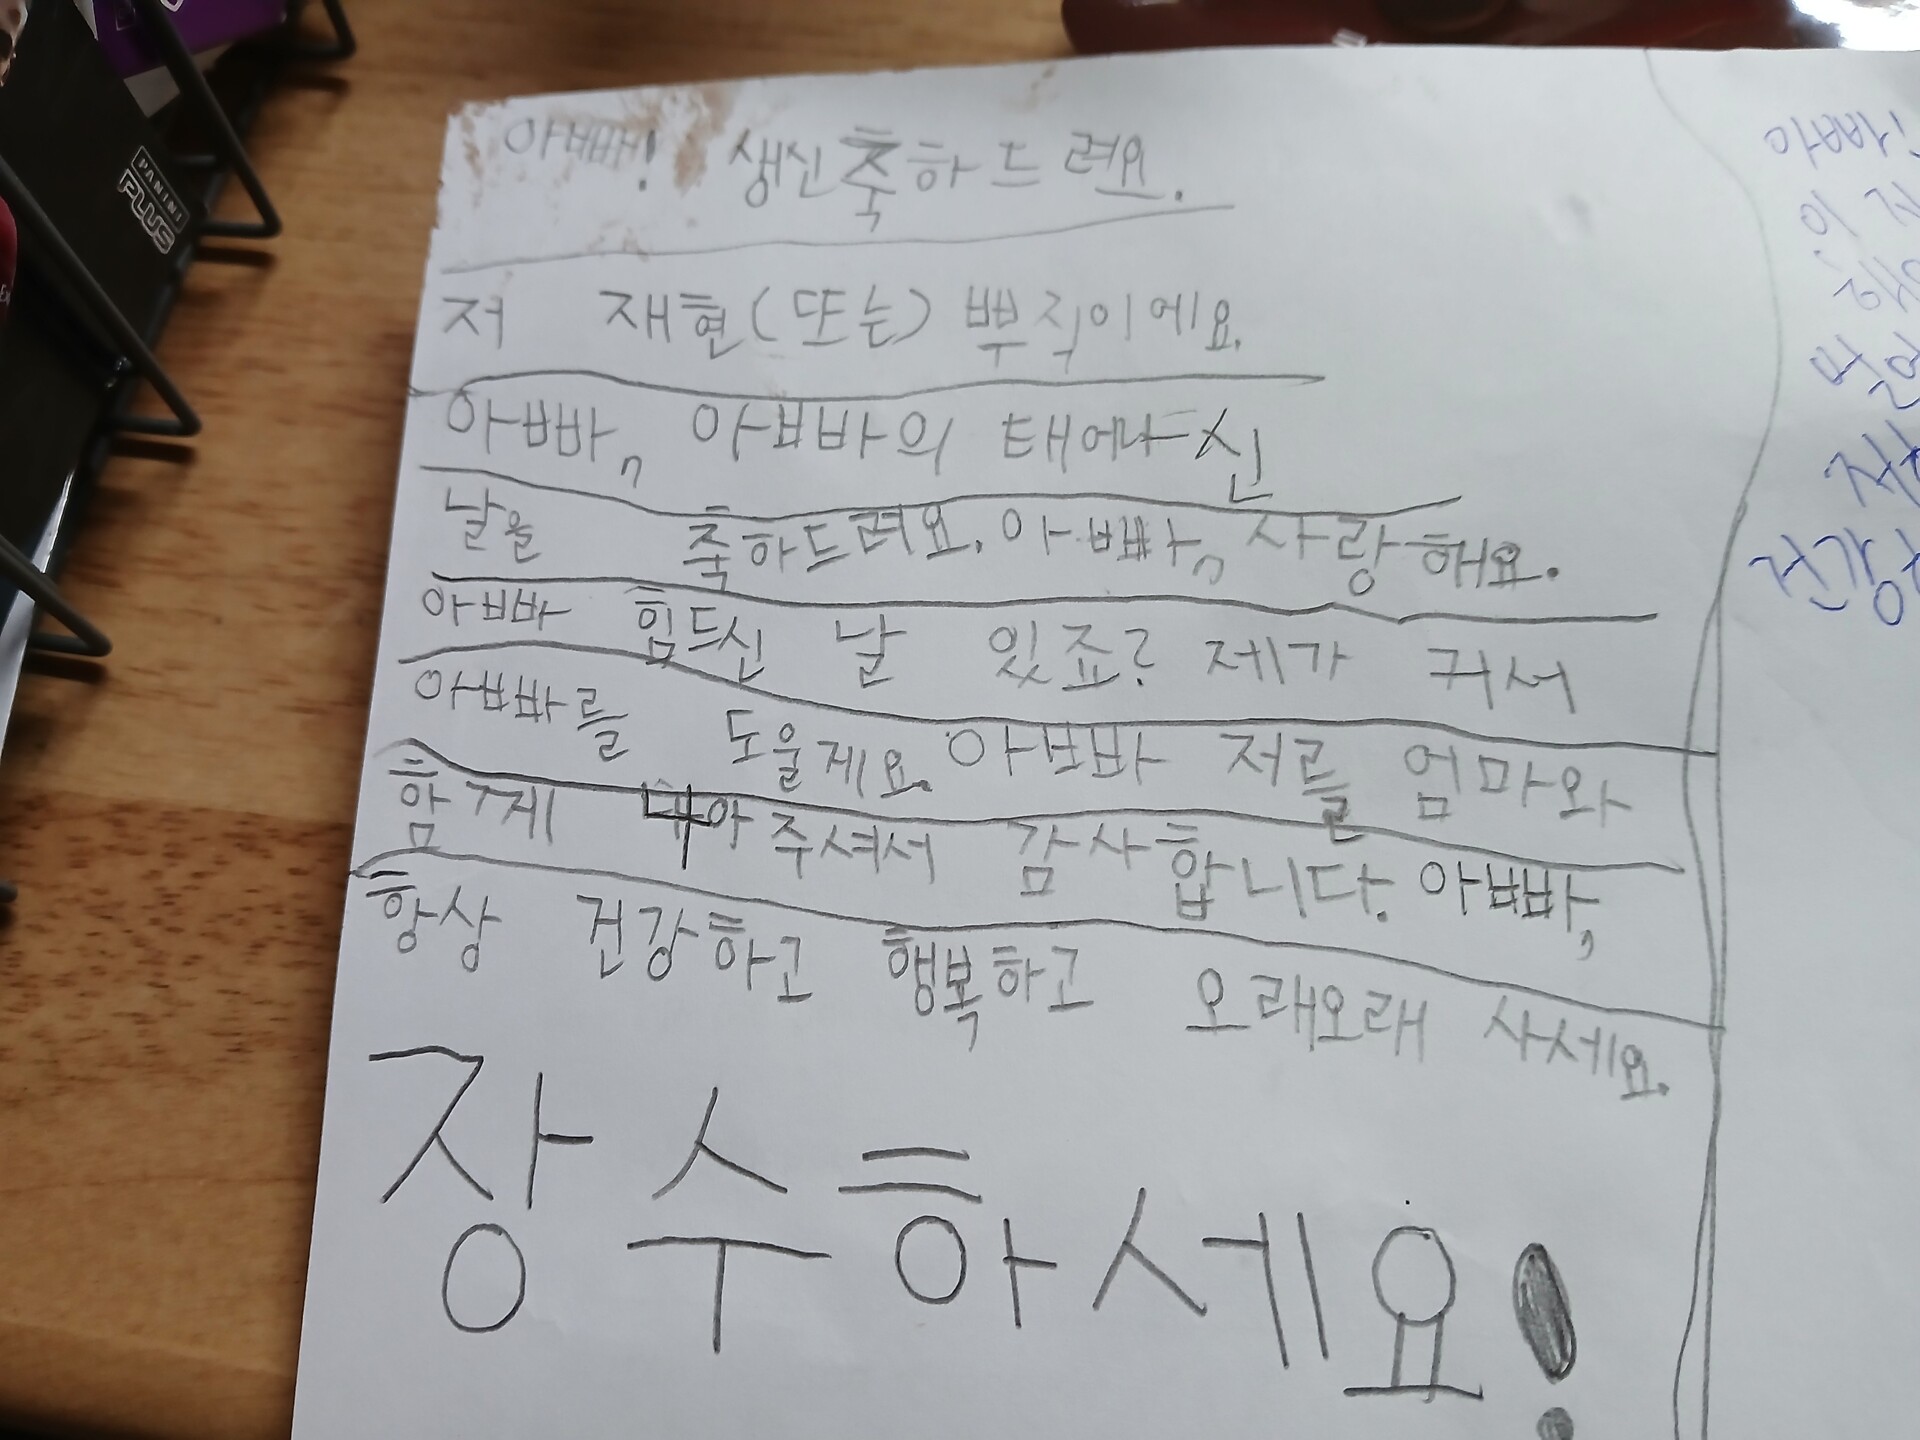 아빠! 생신축하드려요.
저 재현(또는) 뿌직이에요.
아빠, 아빠의 태어나신
날을 축하드려요. 아빠, 사랑해요.
아빠 힘드신 날 있죠? 제가 커서
아빠를 도울게요. 아빠 저를 엄마와
함께 낳아주셔서 감사합니다. 아빠,
항상 건강하고 행복하고 오래오래 사세요.
장수하세요!
PANINI
PLUS